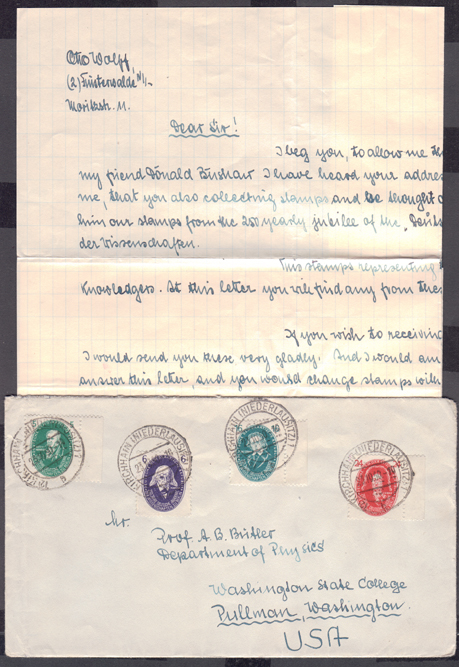 Otto Wolff,
(2) Finsterwalde N/L
Moritzstr. 11.
Dear Sir!
I beg you, to allow me th
my friend Donald Binshaw I have heard your addre
me, that you also collecting stamps and be thought o
him our stamps from the 250 yearly jubilee of the „Deuts
der Wissenschaften.
This stamps representing
Knowledgers. At this letter you will find any from thes
If you wish to receiving
I would send you these very gladly. And I would am
answer this letter, and you would change stamps with
KIRCHHAIN (NIEDERLAUSITZ)
KIRCHHAIN (NIEDERLAUSITZ)
KIRCHHAIN (NIEDERLAUSITZ)
KIRCHHAIN (NIEDERLAUSITZ)
Prof. A. B. Butler
Department of Physics
Washington State College
Pullman, Washington.
USA